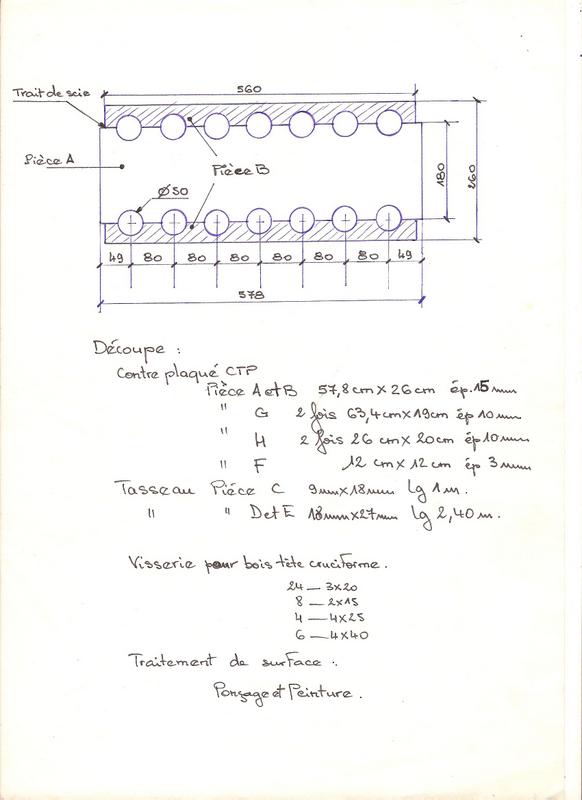 560
Trait de scie
Pièce A
Pièce B
Ø50
180
260
49 80 80 80 80 80 80 49
578
Découpe :
Contre plaqué CTP
Pièce A et B 57,8cm X 26cm ép. 15mm
" G 2 fois 63,4cm X 19cm ép 10mm
" H 2 fois 26 cm X 20cm ép 10mm
" F 12 cm X 12cm ép 3mm
Tasseau Pièce C 9mm X 18mm Lg 1m.
" " D et E 18mm X 27mm Lg 2,40m.
Visserie pour bois tête cruciforme.
24 — 3x20
8 — 2x15
4 — 4x25
6 — 4x40
Traitement de surface :
Ponçage et Peinture.